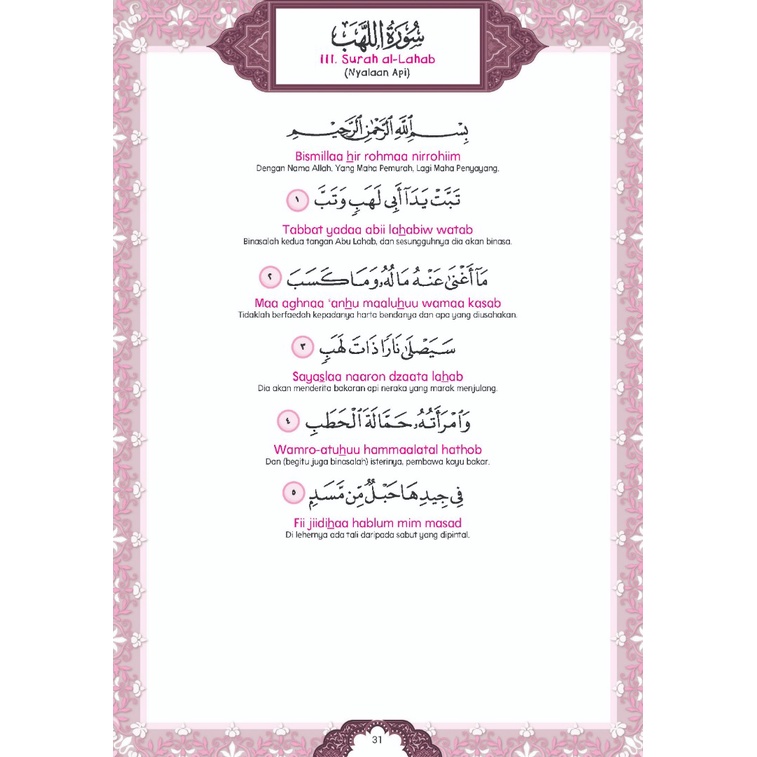 سُورَةُ اللَّهَبِ
111. Surah al-Lahab
(Nyalaan Api)
بِسْمِ اللَّهِ الرَّحْمَٰنِ الرَّحِيمِ
Bismillaa hir rohmaa nirrohiim
Dengan Nama Allah, Yang Maha Pemurah, Lagi Maha Penyayang.
تَبَّتْ يَدَآ أَبِى لَهَبٍ وَتَبَّ ١
Tabbat yadaa abii lahabiw watab
Binasalah kedua tangan Abu Lahab, dan sesungguhnya dia akan binasa.
مَآ أَغْنَىٰ عَنْهُ مَالُهُۥ وَمَا كَسَبَ ٢
Maa aghnaa 'anhu maaluhuu wamaa kasab
Tidaklah berfaedah kepadanya harta bendanya dan apa yang diusahakan.
سَيَصْلَىٰ نَارًا ذَاتَ لَهَبٍ ٣
Sayaslaa naaron dzaata lahab
Dia akan menderita bakaran api neraka yang marak menjulang.
وَٱمْرَأَتُهُۥ حَمَّالَةَ ٱلْحَطَبِ ٤
Wamro-atuhuu hammaalatal hathob
Dan (begitu juga binasalah) isterinya, pembawa kayu bakar.
فِى جِيدِهَا حَبْلٌ مِّن مَّسَدٍۭ ٥
Fii jiidihaa hablum mim masad
Di lehernya ada tali daripada sabut yang dipintal.
31